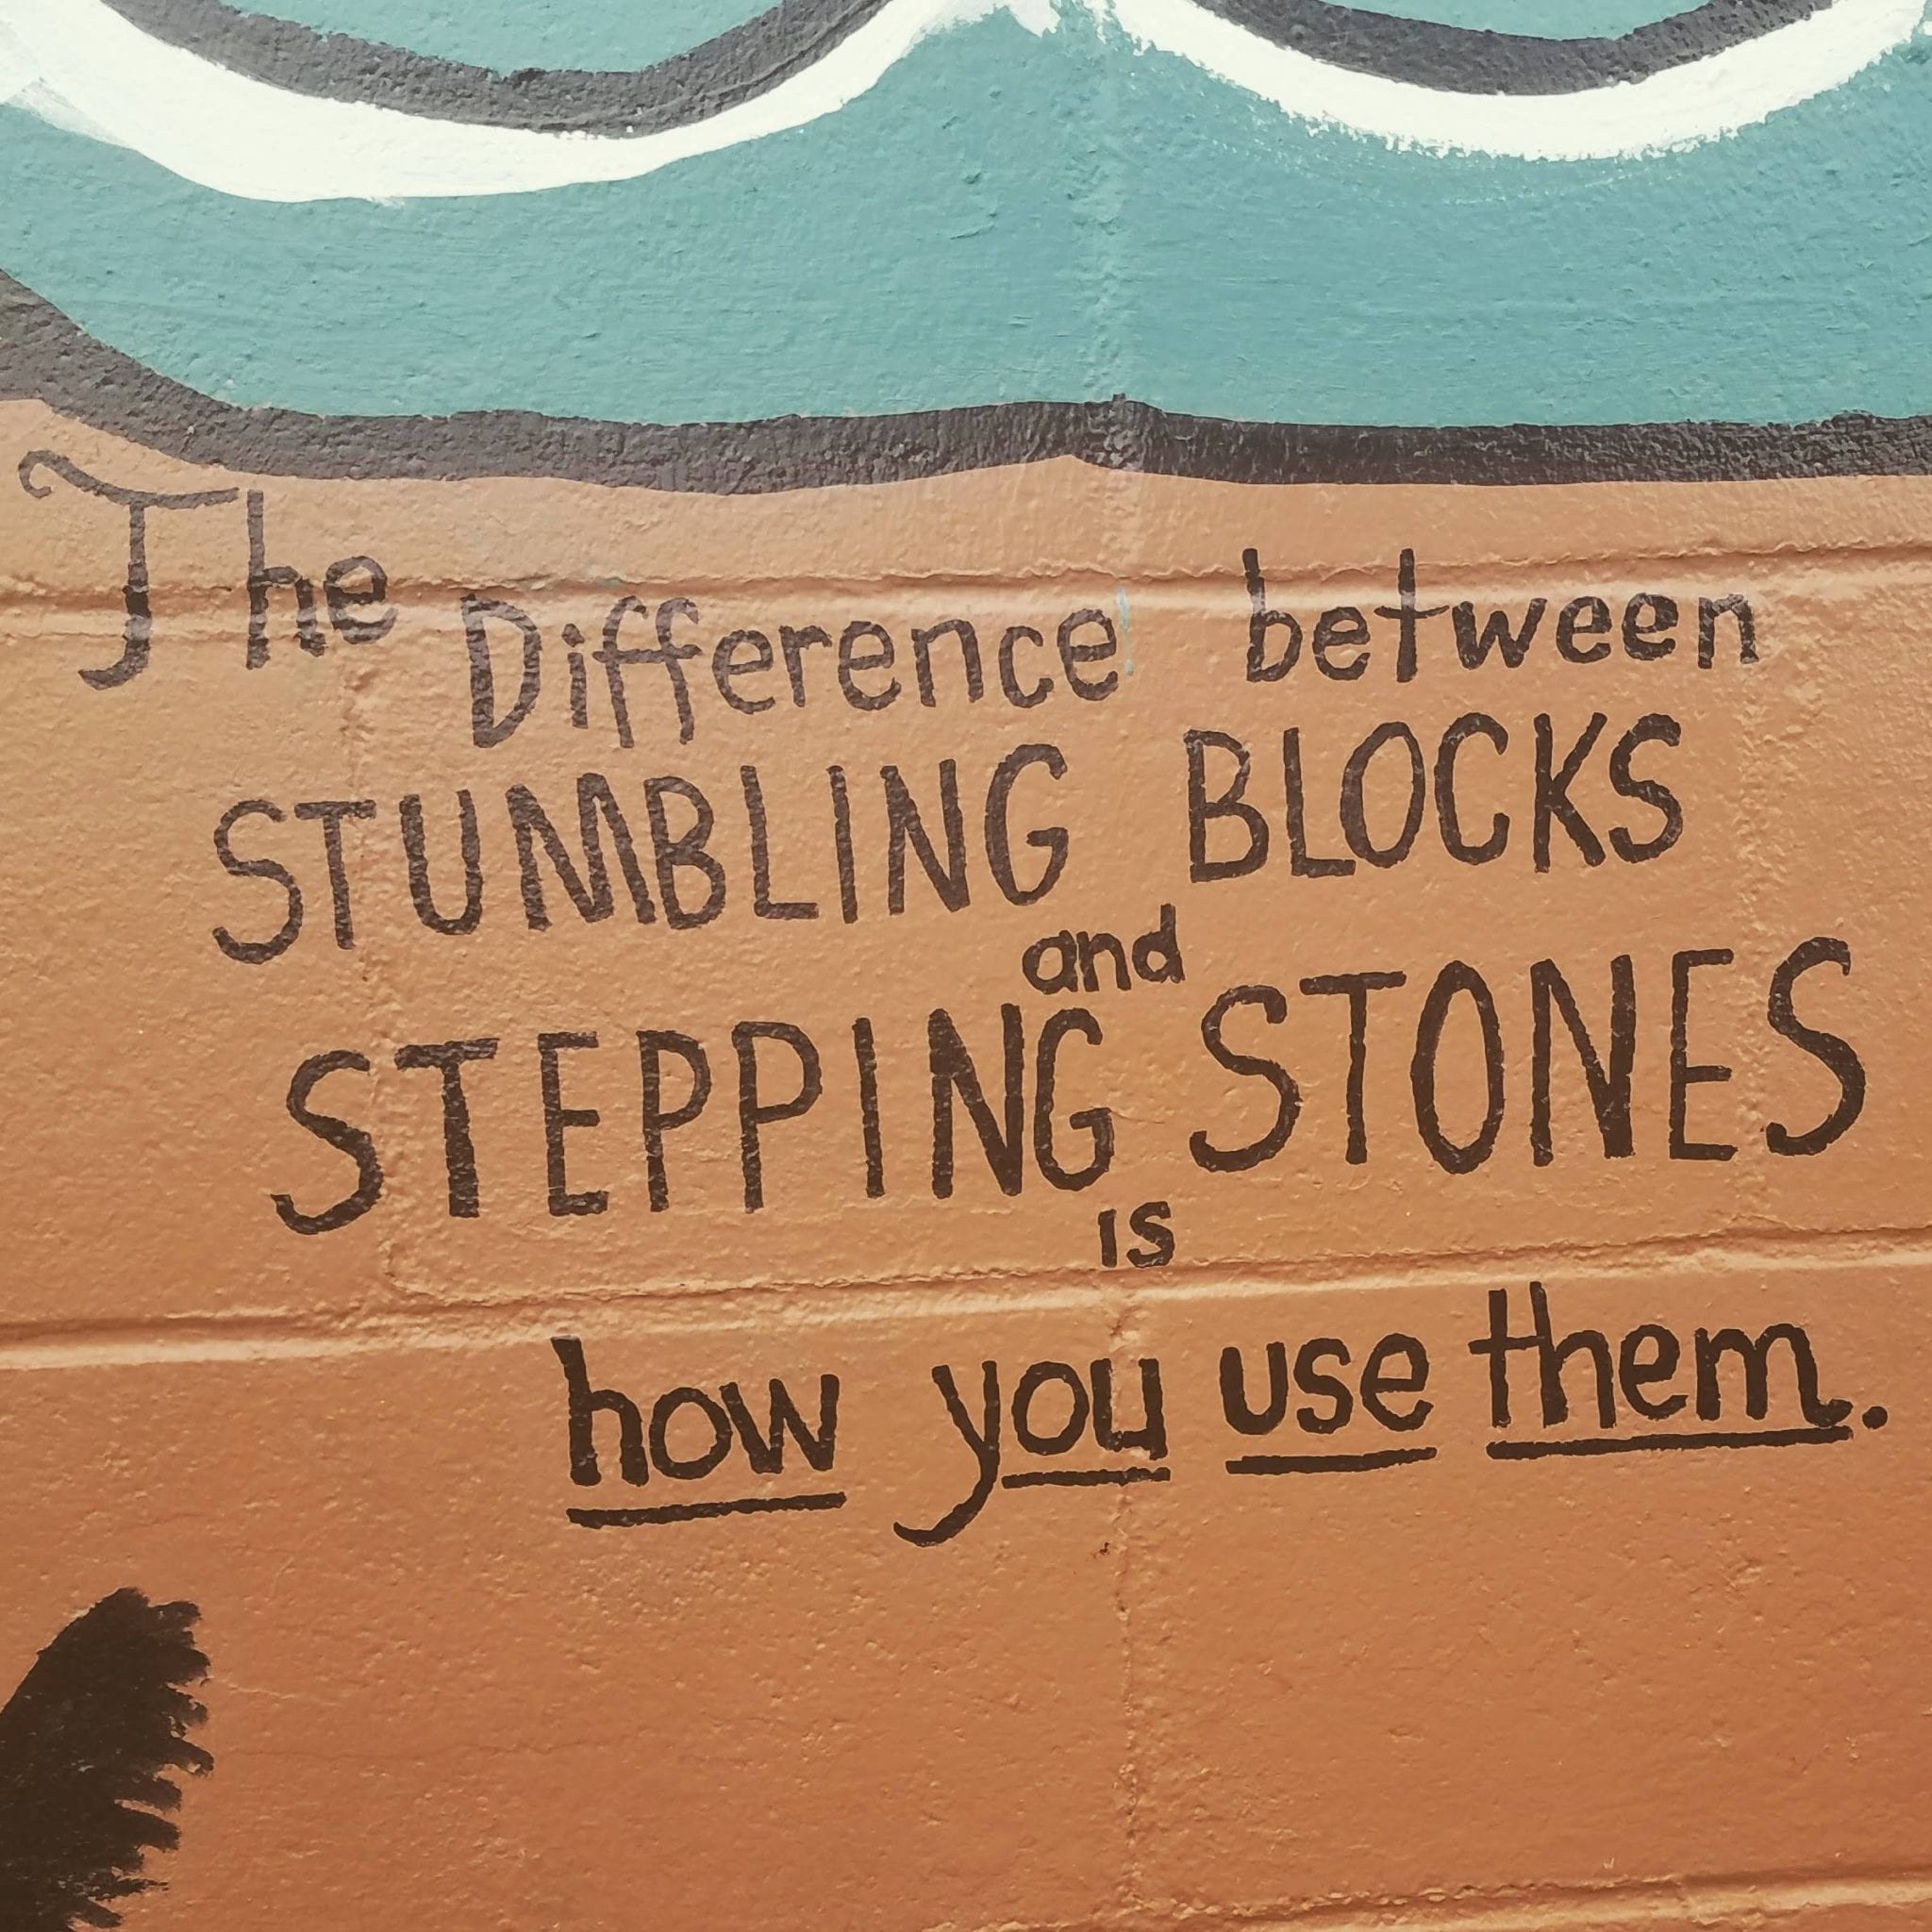 The Difference between
STUMBLING BLOCKS
and
STEPPING STONES
is
how you use them.